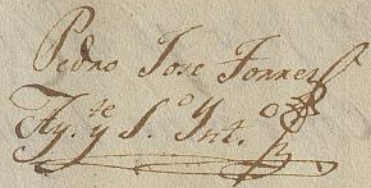 Pedro Jose Torres
Ay.te y S.o Int.o